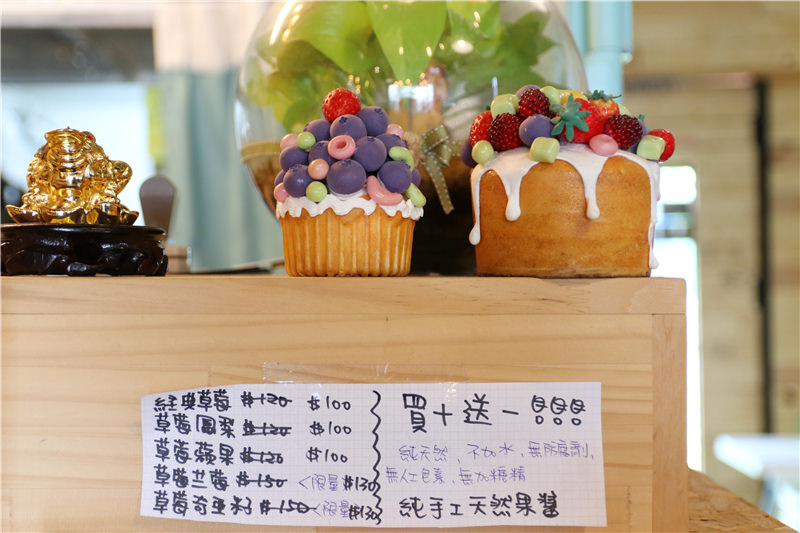 經典草莓 $120 $100
草莓鳳梨 $120 $100
草莓蘋果 $120 $100
草莓芒莓 $150 <限量 $130
草莓奇亞籽 $150 <限量 $130
買十送一!!!
純天然、不加水、無防腐劑、
無人工色素、無加糖精
純手工天然果醬